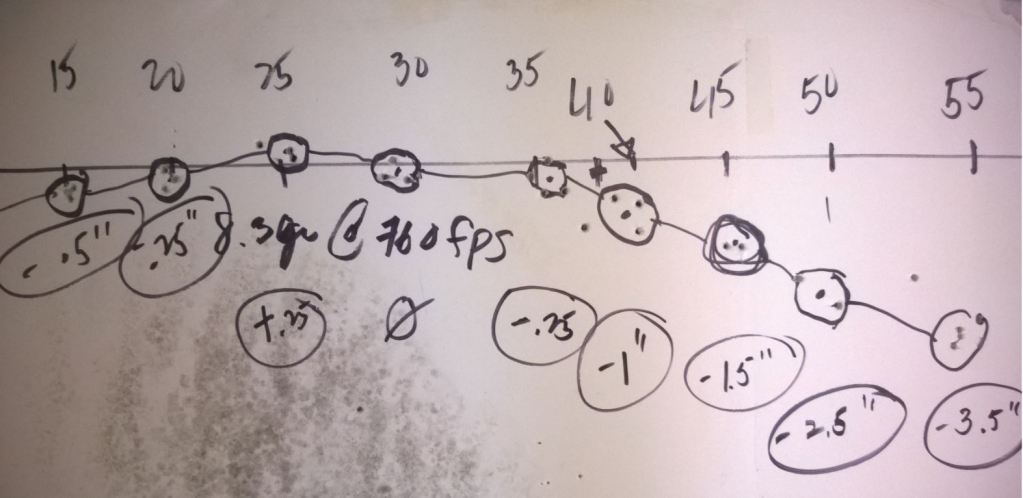 15 20 25 30 35 40 45 50 55
-.5" -.25" 8.3gr @ 760 fps
+.25 Ø -.25 -1" -1.5" -2.5" -3.5"